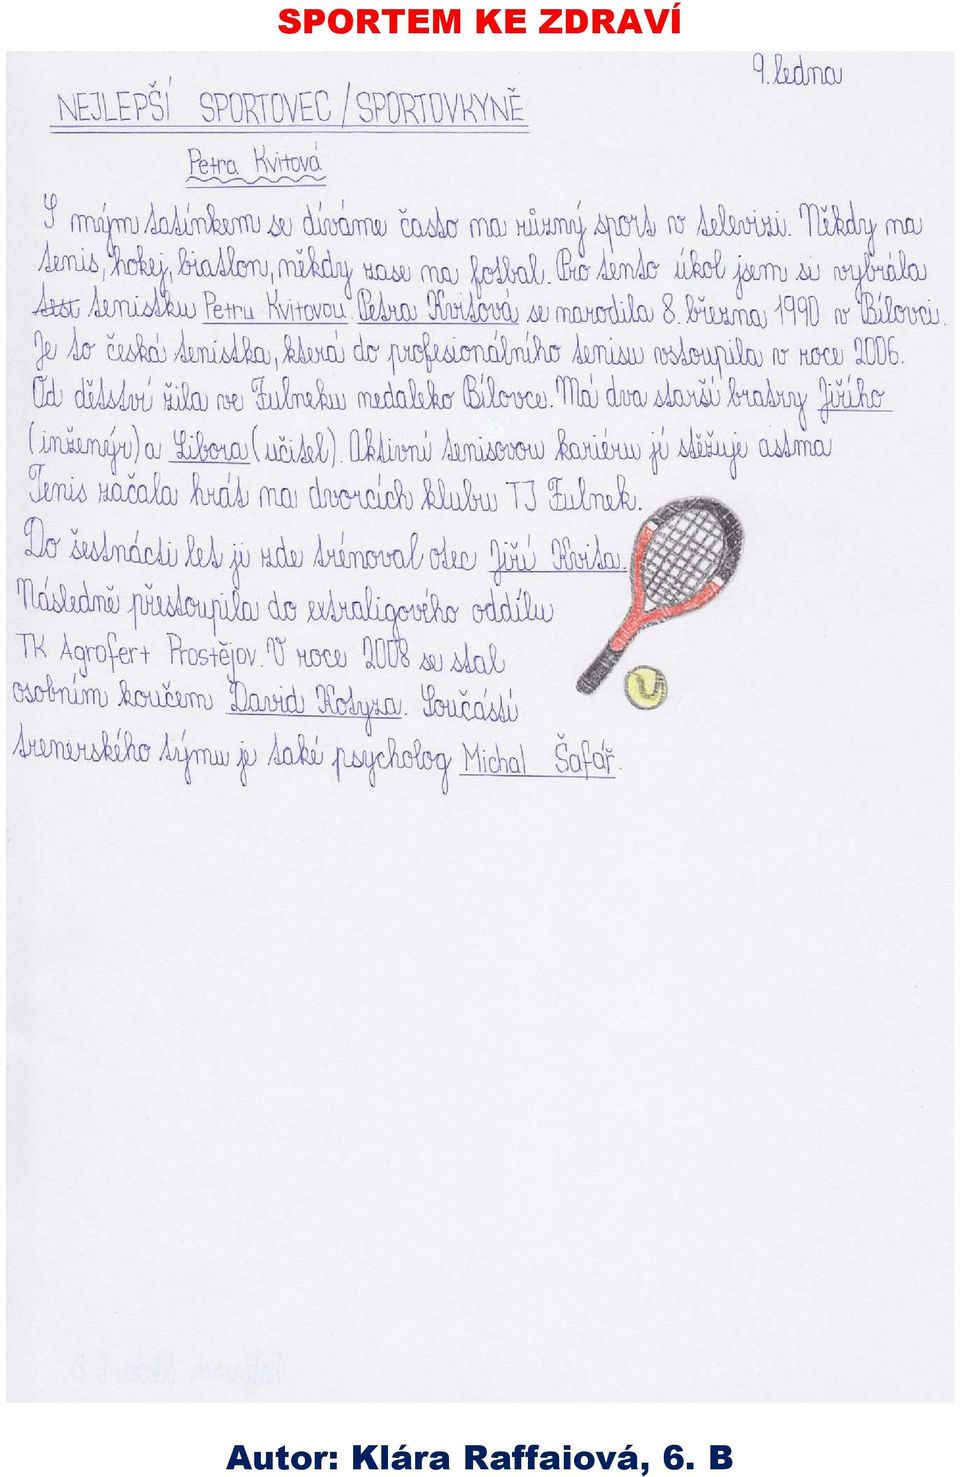 SPORTEM KE ZDRAVÍ
9. ledna
NEJLEPŠÍ SPORTOVEC / SPORTOVKYNĚ
Petra Kvitová
S mým tatínkem se díváme často na různý sport v televizi. Někdy na
tenis, hokej, biatlon, někdy zase na fotbal. Pro tento úkol jsem si vybrala
tenistku Petru Kvitovou. Petra Kvitová se narodila 8. března 1990 v Bílovci.
Je to česká tenistka, která do profesionálního tenisu vstoupila v roce 2006.
Od dětství žila ve Fulneku nedaleko Bílovce. Má dva starší bratry Jiřího
(inženýr) a Libora (učitel). Aktivní tenisovou kariéru jí stěžuje astma
Tenis začala hrát na dvorcích klubu TJ Fulnek.
Do šestnácti let ji zde trénoval otec Jiří Kvita.
Následně přestoupila do extraligového oddílu
TK Agrofert Prostějov. V roce 2008 se stal
osobním koučem David Kotyza. Součástí
trenerského týmu je také psycholog Michal Šafář.
Autor: Klára Raffaiová, 6. B